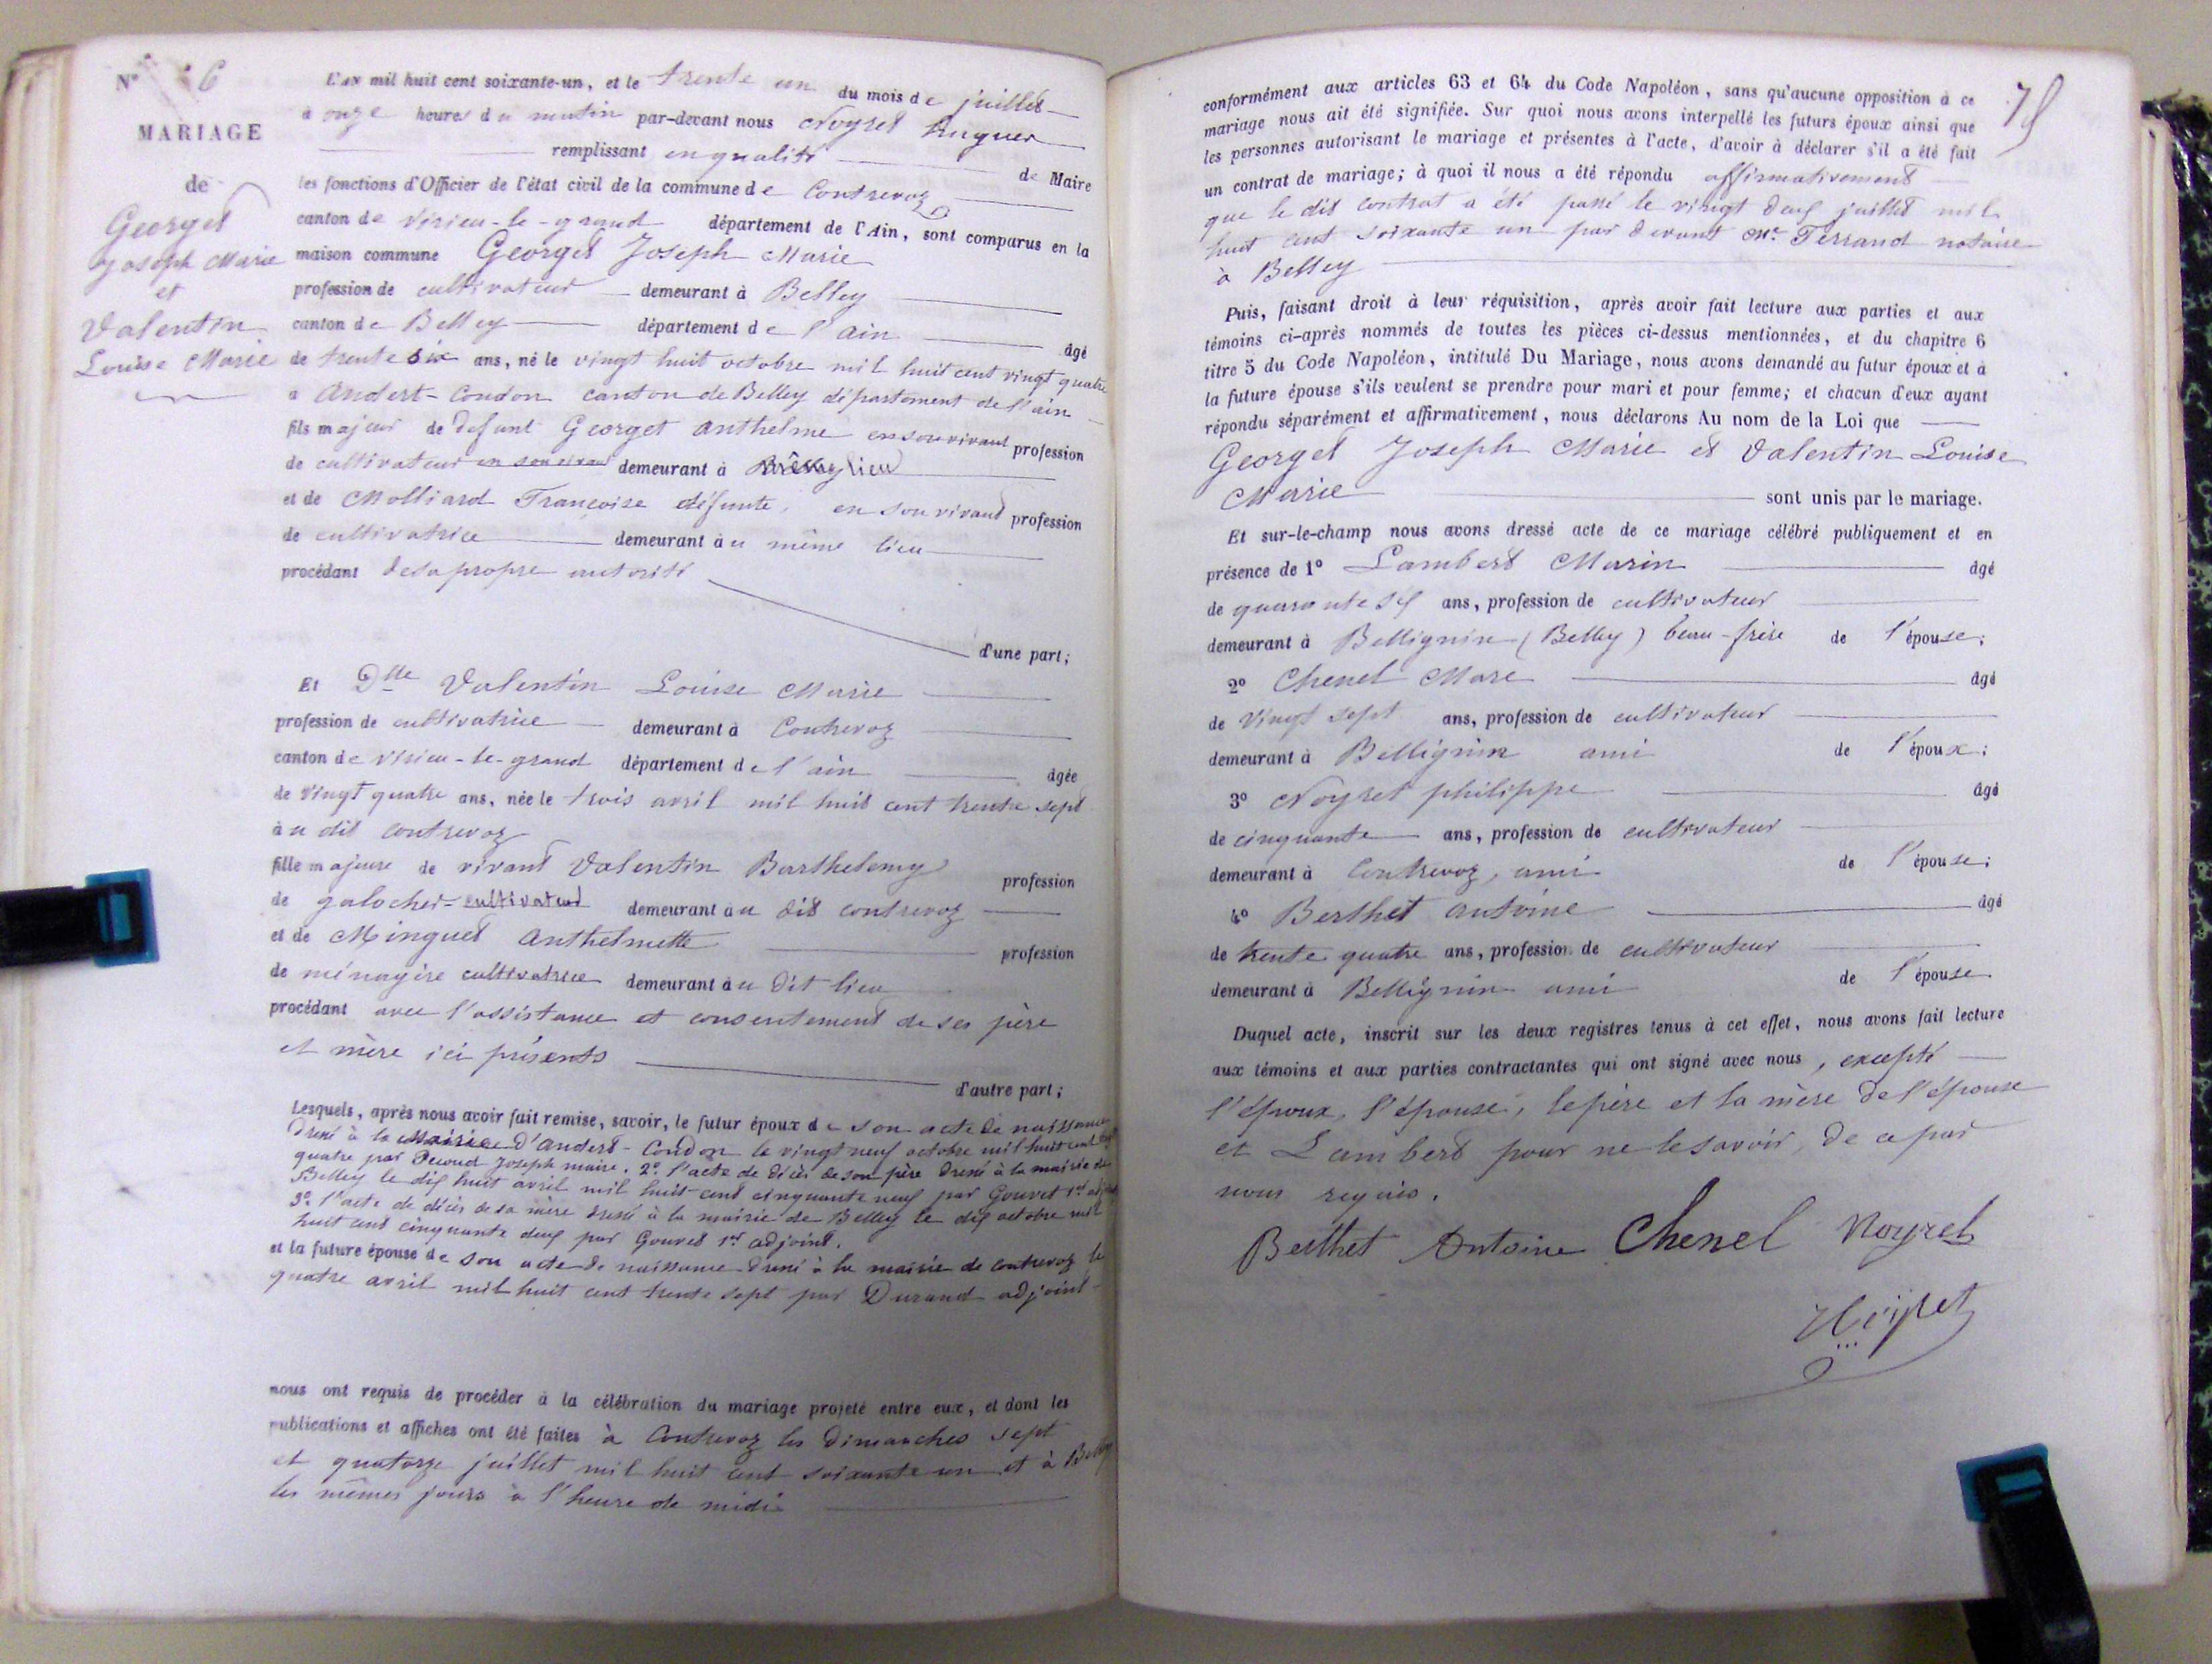 N° 6
MARIAGE
de
Georget
Joseph Marie
et
Valentin
Louise Marie
L'an mil huit cent soixante-un, et le trente un du mois de juillet
à onze heures du matin par-devant nous Noyret
remplissant en qualité de Maire
les fonctions d'Officier de l'état civil de la commune de Contrevoz
canton de Virieu-le-grand département de l'Ain, sont comparus en la
maison commune Georget Joseph Marie
profession de cultivateur demeurant à Belley
canton de Belley département de l'ain âgé
de trente six ans, né le vingt huit octobre mil huit cent vingt quatre
à Andert-Condon canton de Belley département de l'ain
fils majeur de defunt Georget Anthelme en son vivant profession
de cultivateur en son vivant demeurant à
et de Molliard Françoise défunte, en son vivant profession
de cultivatrice demeurant au même lieu
procédant de sa propre autorité
d'une part;
Et Dlle Valentin Louise Marie
profession de cultivatrice demeurant à Contrevoz
canton de Virieu-le-grand département de l'ain âgée
de vingt quatre ans, née le trois avril mil huit cent trente sept
au dit Contrevoz
fille majeure de vivant Valentin Barthelemy profession
de galocher cultivateur demeurant au dit contrevoz
et de Minguet Anthelmette profession
de ménagère cultivatrice demeurant au dit lieu
procédant avec l'assistance et consentement de ses père
et mère ici présents
d'autre part;
Lesquels, après nous avoir fait remise, savoir, le futur époux de son acte de naissance
dressé à la Mairie d'Andert-Condon le vingt neuf octobre mil huit cent vingt
quatre par Joseph maire. 2° l'acte de décès de son père dressé à la mairie de
Belley le dix huit avril mil huit cent cinquante neuf par Gouvet 1er adjoint
3° l'acte de décès de sa mère dressé à la mairie de Belley le dix octobre mil
huit cent cinquante deux par Gouvet 1er adjoint.
et la future épouse de son acte de naissance dressé à la mairie de contrevoz le
quatre avril mil huit cent trente sept par Durand adjoint
nous ont requis de procéder à la célébration du mariage projeté entre eux, et dont les
publications et affiches ont été faites à Contrevoz les Dimanches sept
et quatorze juillet mil huit cent soixante un et à Belley
les mêmes jours à l'heure de midi
75
conformément aux articles 63 et 64 du Code Napoléon, sans qu'aucune opposition à ce
mariage nous ait été signifiée. Sur quoi nous avons interpellé les futurs époux ainsi que
les personnes autorisant le mariage et présentes à l'acte, d'avoir à déclarer s'il a été fait
un contrat de mariage; à quoi il nous a été répondu affirmativement
que le dit contrat a été passé le vingt deux juillet mil
huit cent soixante un par devant Me Ferrand notaire
à Belley
Puis, faisant droit à leur réquisition, après avoir fait lecture aux parties et aux
témoins ci-après nommés de toutes les pièces ci-dessus mentionnées, et du chapitre 6
titre 5 du Code Napoléon, intitulé Du Mariage, nous avons demandé au futur époux et à
la future épouse s'ils veulent se prendre pour mari et pour femme; et chacun d'eux ayant
répondu séparément et affirmativement, nous déclarons Au nom de la Loi que
Georget Joseph Marie et Valentin Louise
Marie sont unis par le mariage.
Et sur-le-champ nous avons dressé acte de ce mariage célébré publiquement et en
présence de 1° Lambert Marin âgé
de quarante ans, profession de cultivateur
demeurant à Bellignin (Belley) beau-frère de l'épouse;
2° Chenel Marc âgé
de vingt sept ans, profession de cultivateur
demeurant à Bellignin ami de l'époux;
3° Noyret philippe âgé
de cinquante ans, profession de cultivateur
demeurant à Contrevoz, ami de l'épouse;
4° Berthet antoine âgé
de trente quatre ans, profession de cultivateur
demeurant à Bellignin ami de l'épouse
Duquel acte, inscrit sur les deux registres tenus à cet effet, nous avons fait lecture
aux témoins et aux parties contractantes qui ont signé avec nous, excepté
l'époux, l'épouse, le père et la mère de l'épouse
et Lambert pour ne le savoir, de ce par
nous requis.
Berthet Antoine Chenel Noyret
Noyret